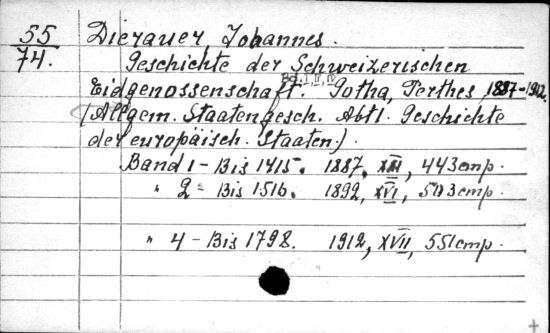 55
74.
Dierauer, Johannes.
Geschichte der Schweizerischen
Bd. I, II, IV
Eidgenossenschaft. Gotha, Perthes 1887-1912.
(Allgem. Staatengesch. Abtl. Geschichte
der europäisch. Staaten.)
Band 1 - Bis 1415. 1887, XIII, 443 cmp.
" 2 = Bis 1516. 1892, XVI, cmp.
" 4 - Bis 1798. 1912, XVII, 551 cmp.
+